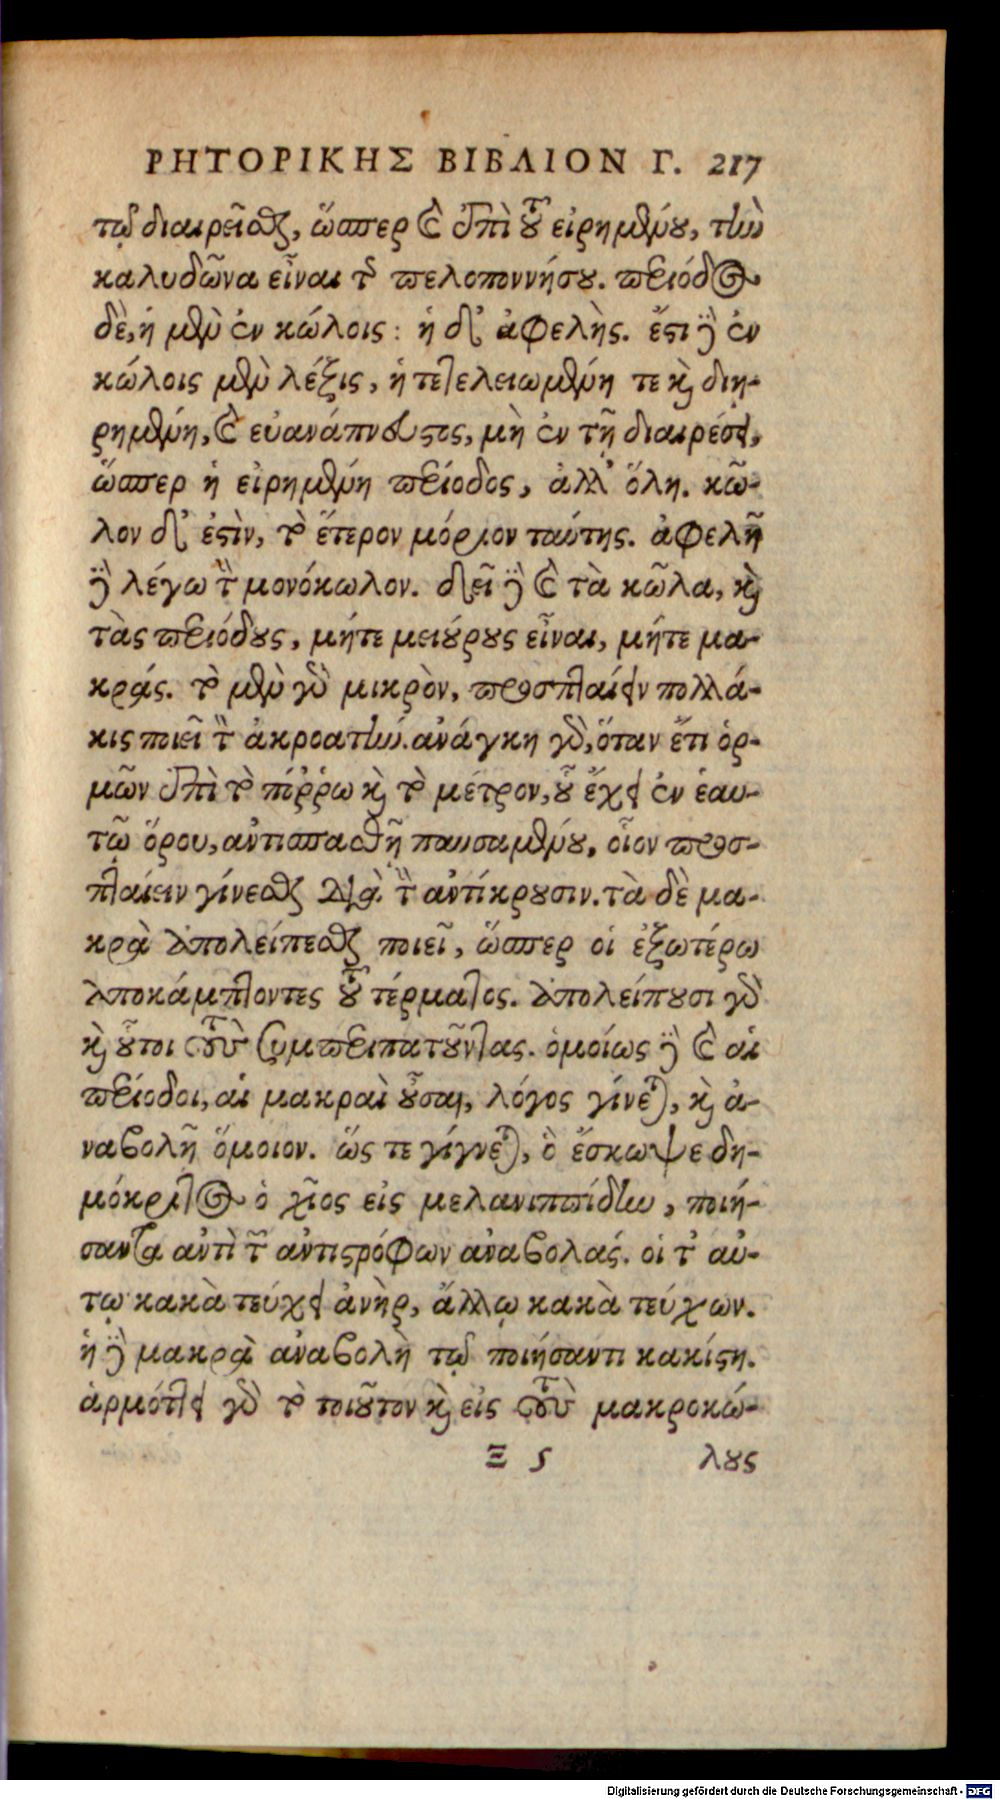 ΡΗΤΟΡΙΚΗΣ ΒΙΒΛΙΟΝ Γ. 217
τῷ διαιρεῖσθαι, ὥσπερ καὶ ἐπὶ τοῦ εἰρημένου, τὴν
καλυδῶνα εἶναι τῆς πελοποννήσου. περίοδος
δὲ, ἡ μὲν ἐν κώλοις: ἡ δ' ἀφελὴς. ἔστι δὲ ἐν
κώλοις μὲν λέξις, ἡ τετελειωμένη τε καὶ διῃ-
ρημένη, καὶ εὐανάπνευστος, μὴ ἐν τῇ διαιρέσει,
ὥσπερ ἡ εἰρημένη περίοδος, ἀλλ' ὅλη. κῶ-
λον δ' ἐστὶν, τὸ ἕτερον μόριον ταύτης. ἀφελῆ
δὲ λέγω τὴν μονόκωλον. δεῖ δὲ καὶ τὰ κῶλα, καὶ
τὰς περιόδους, μήτε μειούρους εἶναι, μήτε μα-
κράς. τὸ μὲν γὰρ μικρὸν, προσπταίειν πολλά-
κις ποιεῖ τὸν ἀκροατήν. ἀνάγκη γὰρ, ὅταν ἔτι ὁρ-
μῶν ἐπὶ τὸ πόῤῥω καὶ τὸ μέτρον, οὗ ἔχει ἐν ἑαυ-
τῷ ὅρου, ἀντισπασθῇ παυσαμένου, οἷον προσ-
πταίειν γίνεσθαι διὰ τὴν ἀντίκρουσιν. τὰ δὲ μα-
κρὰ ἀπολείπεσθαι ποιεῖ, ὥσπερ οἱ ἐξωτέρω
ἀποκάμπτοντες τοῦ τέρματος. ἀπολείπουσι γὰρ
καὶ οὗτοι τοὺς συμπεριπατοῦντας. ὁμοίως δὲ καὶ αἱ
περίοδοι, αἱ μακραὶ οὖσαι, λόγος γίνεται, καὶ ἀ-
ναβολῇ ὅμοιον. ὥς τε γίγνεται, ὃ ἔσκωψε δη-
μόκριτος ὁ χῖος εἰς μελανιππίδην, ποιή-
σαντα ἀντὶ τῶν ἀντιστρόφων ἀναβολάς. οἱ τ' αὐ-
τῷ κακὰ τεύχει ἀνὴρ, ἄλλῳ κακὰ τεύχων.
ἡ δὲ μακρὰ ἀναβολὴ τῷ ποιήσαντι κακίστη.
ἁρμόττει γὰρ τὸ τοιοῦτον καὶ εἰς τοὺς μακροκώ-
Ξ 5 λους
Digitalisierung gefördert durch die Deutsche Forschungsgemeinschaft - DFG